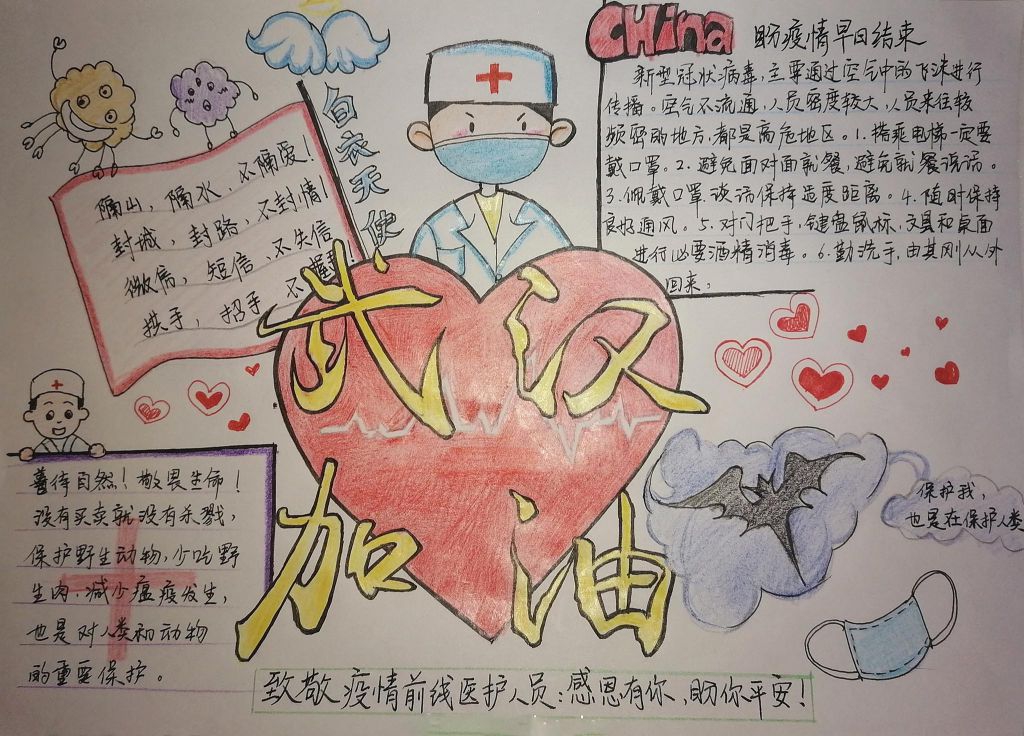 CHina 盼疫情早日结束
新型冠状病毒,主要通过空气中的飞沫进行
传播。空气不流通,人员密度较大,人员来往较
频密的地方,都是高危地区。1.搭乘电梯一定要
戴口罩。2.避免面对面就餐,避免就餐说话。
3.佩戴口罩谈话保持适度距离。4.随时保持
良好通风。5.对门把手,键盘鼠标,文具和桌面
进行必要酒精消毒。6.勤洗手,由其刚从外
回来,
白衣天使
隔山,隔水,不隔爱!
封城,封路,不封情!
微信,短信、不失信
拱手,招手 不握手!
武汉
加油
善待自然!敬畏生命!
没有买卖就没有杀戮,
保护野生动物,少吃野
生肉.减少瘟疫发生,
也是对人类和动物
的重要保护。
保护我,
也是在保护人类
致敬疫情前线医护人员:感恩有你、盼你平安!